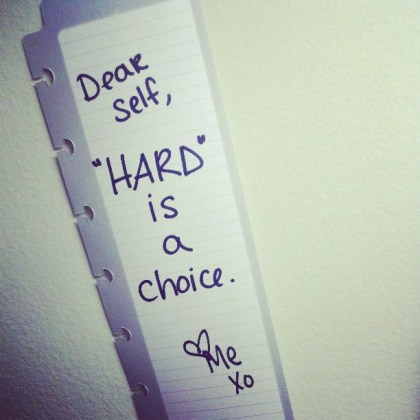 Dear
Self,
"HARD"
is
a
choice.
♡Me
xo